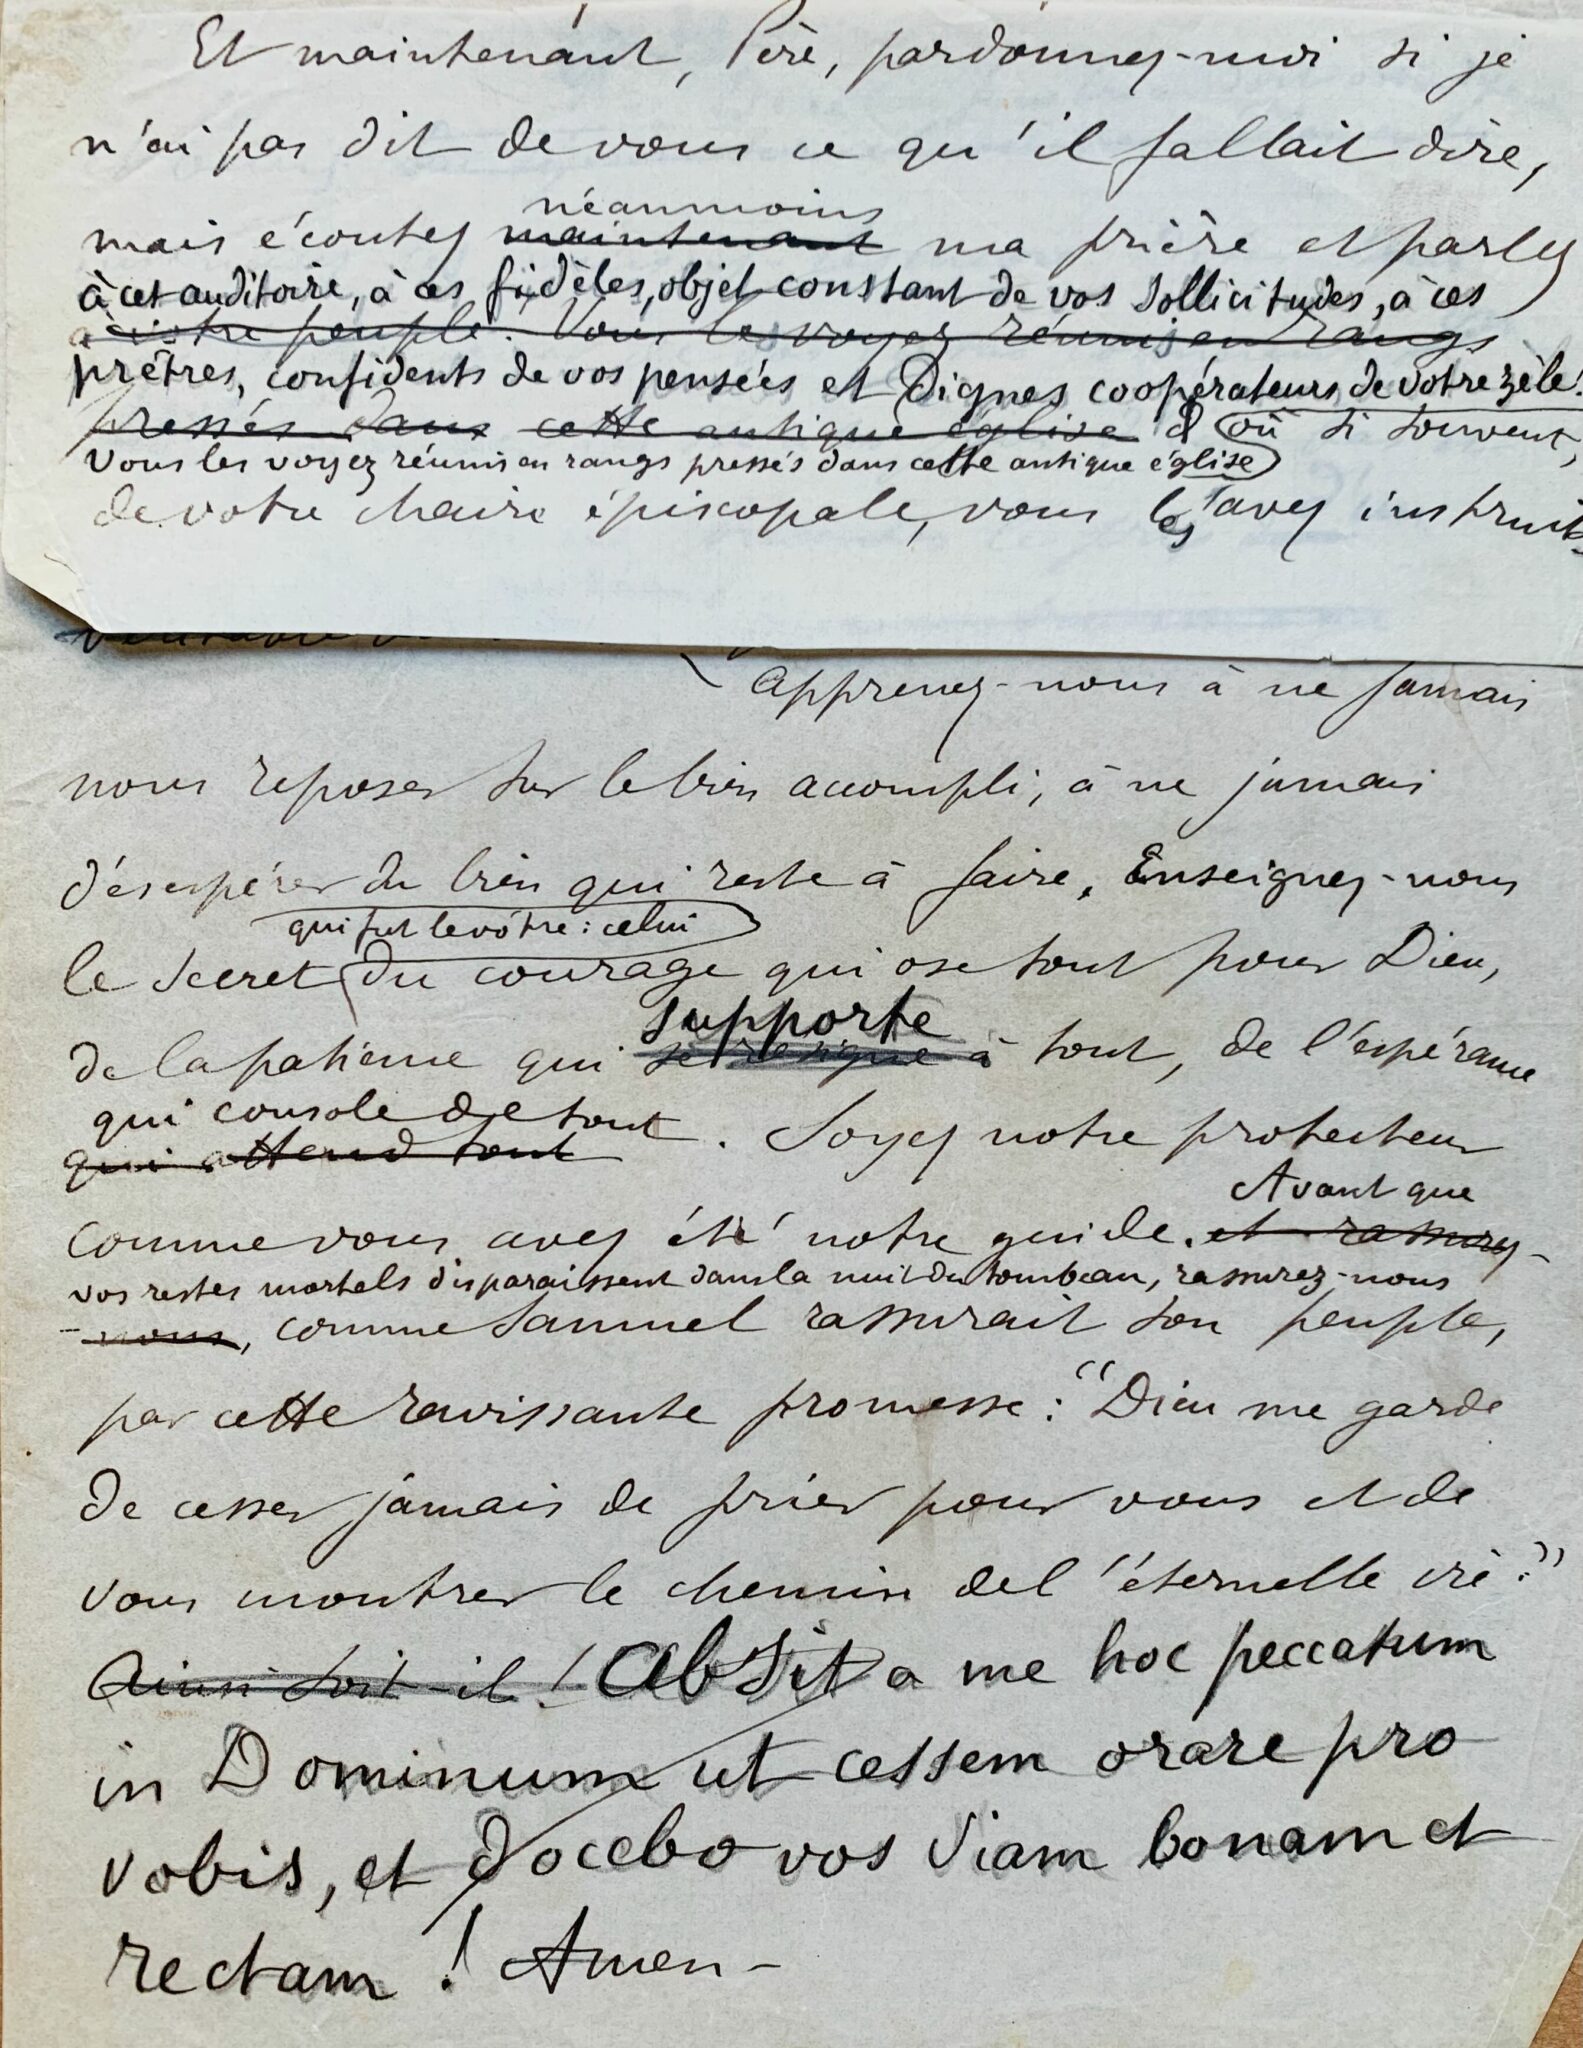 Et maintenant, Père, pardonnez-moi si je
n'ai pas dit de vous ce qu'il fallait dire,
néanmoins
mais écoutez maintenant ma prière et parlez
à cet auditoire, à ces fidèles, objet constant de vos sollicitudes, à ces
à votre peuple. Vous les voyez réunis en rangs
prêtres, confidents de vos pensées et dignes coopérateurs de votre zèle!
pressés dans cette antique église où si souvent,
Vous les voyez réunis en rangs pressés dans cette antique église
de votre chaire épiscopale, vous les avez instruits
Apprenez-nous à ne jamais
nous reposer sur le bien accompli, à ne jamais
désespérer du bien qui reste à faire, Enseignez-nous
qui fut le vôtre : celui
le secret du courage qui ose tout pour Dieu,
supporte
de la patience qui se résigne à tout, de l'espérance
qui console de tout
qui attend tout. Soyez notre protecteur
Avant que
comme vous avez été notre guide. et rassurez-
vos restes mortels disparaissent dans la nuit du tombeau, rassurez-nous
-nous, comme Samuel rassurait son peuple,
par cette ravissante promesse : "Dieu me garde
de cesser jamais de prier pour vous et de
vous montrer le chemin de l'éternelle vie."
Ainsi soit-il ! Absit a me hoc peccatum
in Dominum ut cessem orare pro
vobis, et docebo vos viam bonam et
rectam ! Amen-